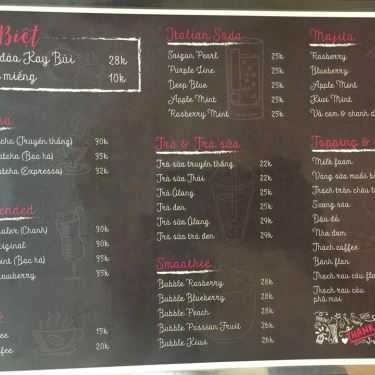 Biệt
đào Kay Bùi 28k
miếng 10k
(Truyền thống) 30k
(Bạc hà) 35k
(Expresso) 32k
ended
(Chanh) 30k
iginal 30k
int (Bạc hà) 35k
awberry 35k
fee 15k
fee 20k
Italian Soda
Saigon Pearl 25k
Purple Line 25k
Deep Blue 25k
Apple Mint 25k
Rasberry Mint 25k
Trà & Trà sữa
Trà sữa truyền thống 22k
Trà sữa Thái 22k
Trà Ôlong 25k
Trà đen 25k
Trà sữa Ôlong 29k
Trà sữa trà đen 29k
Smoothie
Bubble Rasberry 28k
Bubble Blueberry 28k
Bubble Peach 28k
Bubble Passion Fruit 28k
Bubble Kiwi 28k
Mojito
Rasberry
Blueberry
Apple Mint
Kiwi Mint
Vỏ cam & chanh d
Topping &
Milk foam
Váng sữa muối bi
Thạch trân châu t
Sương sáo
Đậu đỏ
Nha đam
Thạch coffee
Bánh flan
Thạch rau câu fla
Thạch rau câu
phô mai
THANK